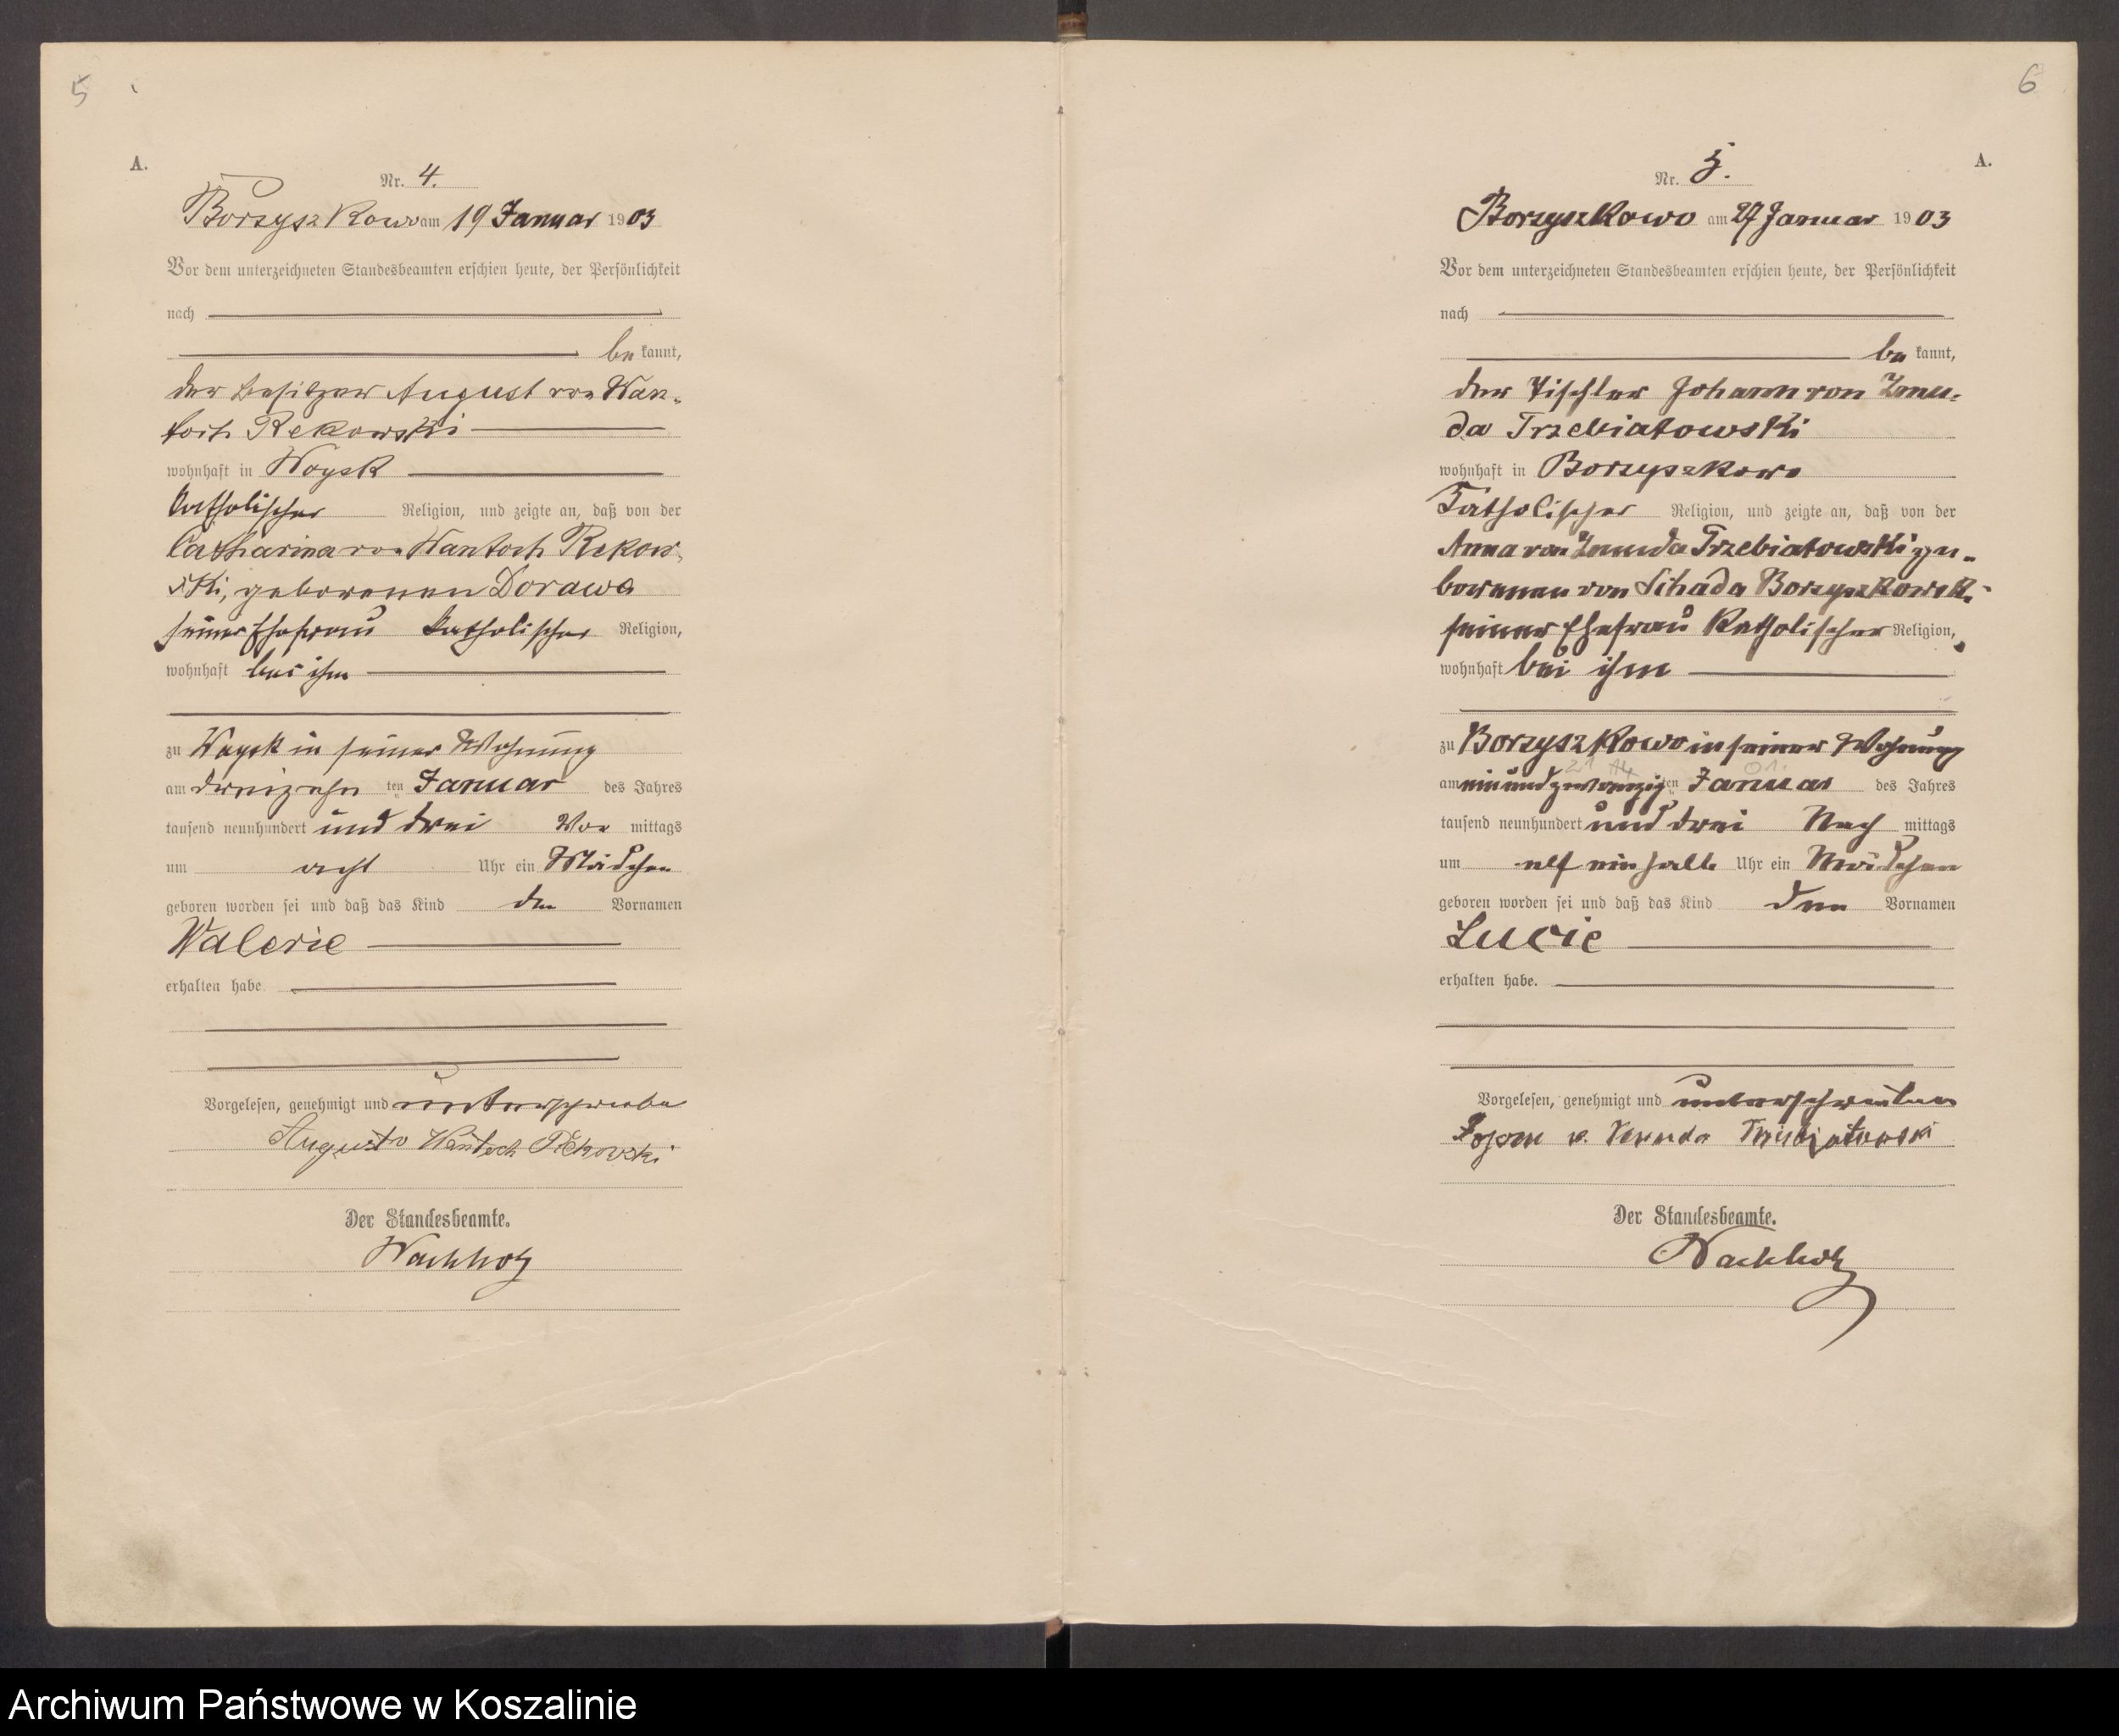 5
A.
Nr. 4.
Borzyszkowo am 19 Januar 1903
Vor dem unterzeichneten Standesbeamten erschien heute, der Persönlichkeit
nach
be kannt,
der Besitzer August von Wan-
toch Rekowski
wohnhaft in Woysk
katholischer Religion, und zeigte an, daß von der
Catharina von Wantoch Rekow-
ski, geborenen Dorawa
seiner Ehefrau katholischer Religion,
wohnhaft bei ihm
zu Woysk in seiner Wohnung
am dreizehn ten Januar des Jahres
tausend neunhundert und drei Vor mittags
um acht Uhr ein Mädchen
geboren worden sei und daß das Kind den Vornamen
Valerie
erhalten habe
Vorgelesen, genehmigt und unterschrieben
Augusto Wantoch Rekowski
Der Standesbeamte.
Wachholz
6
A.
Nr. 5.
Borzyszkowo am 27 Januar 1903
Vor dem unterzeichneten Standesbeamten erschien heute, der Persönlichkeit
nach
be kannt,
der Tischler Johann von Zmu-
da Trzebiatowski
wohnhaft in Borzyszkowo
katholischer Religion, und zeigte an, daß von der
Anna von Zmuda Trzebiatowski ge-
borenen von Schada Borzyszkowski
seiner Ehefrau katholischer Religion,
wohnhaft bei ihm
zu Borzyszkowo in seiner Wohnung
21 01.
am einundzwanzig ten Januar des Jahres
tausend neunhundert und drei Nach mittags
um elf einhalb Uhr ein Mädchen
geboren worden sei und daß das Kind den Vornamen
Lucie
erhalten habe.
Vorgelesen, genehmigt und unterschrieben
v. Trzebiatowski
Der Standesbeamte.
Wachholz
Archiwum Państwowe w Koszalinie